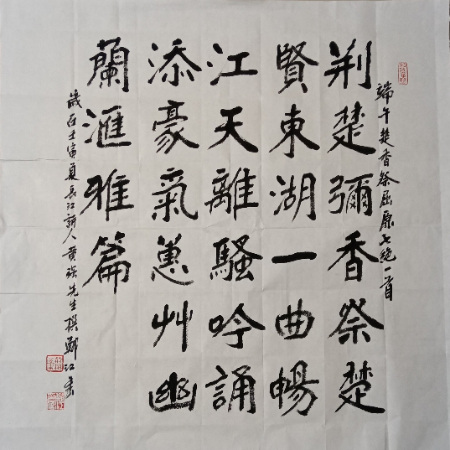 端午楚香祭屈原七绝一首
荆楚彌香祭楚
賢東湖一曲暢
江天離騷吟誦
添豪氣蕙艸幽
蘭滙雅篇
歲在壬寅夏長江詩人黄先生撰江書